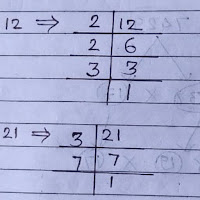 12 ⇒ 2 | 12
2 | 6
3 | 3
1
21 ⇒ 3 | 21
7 | 7
1